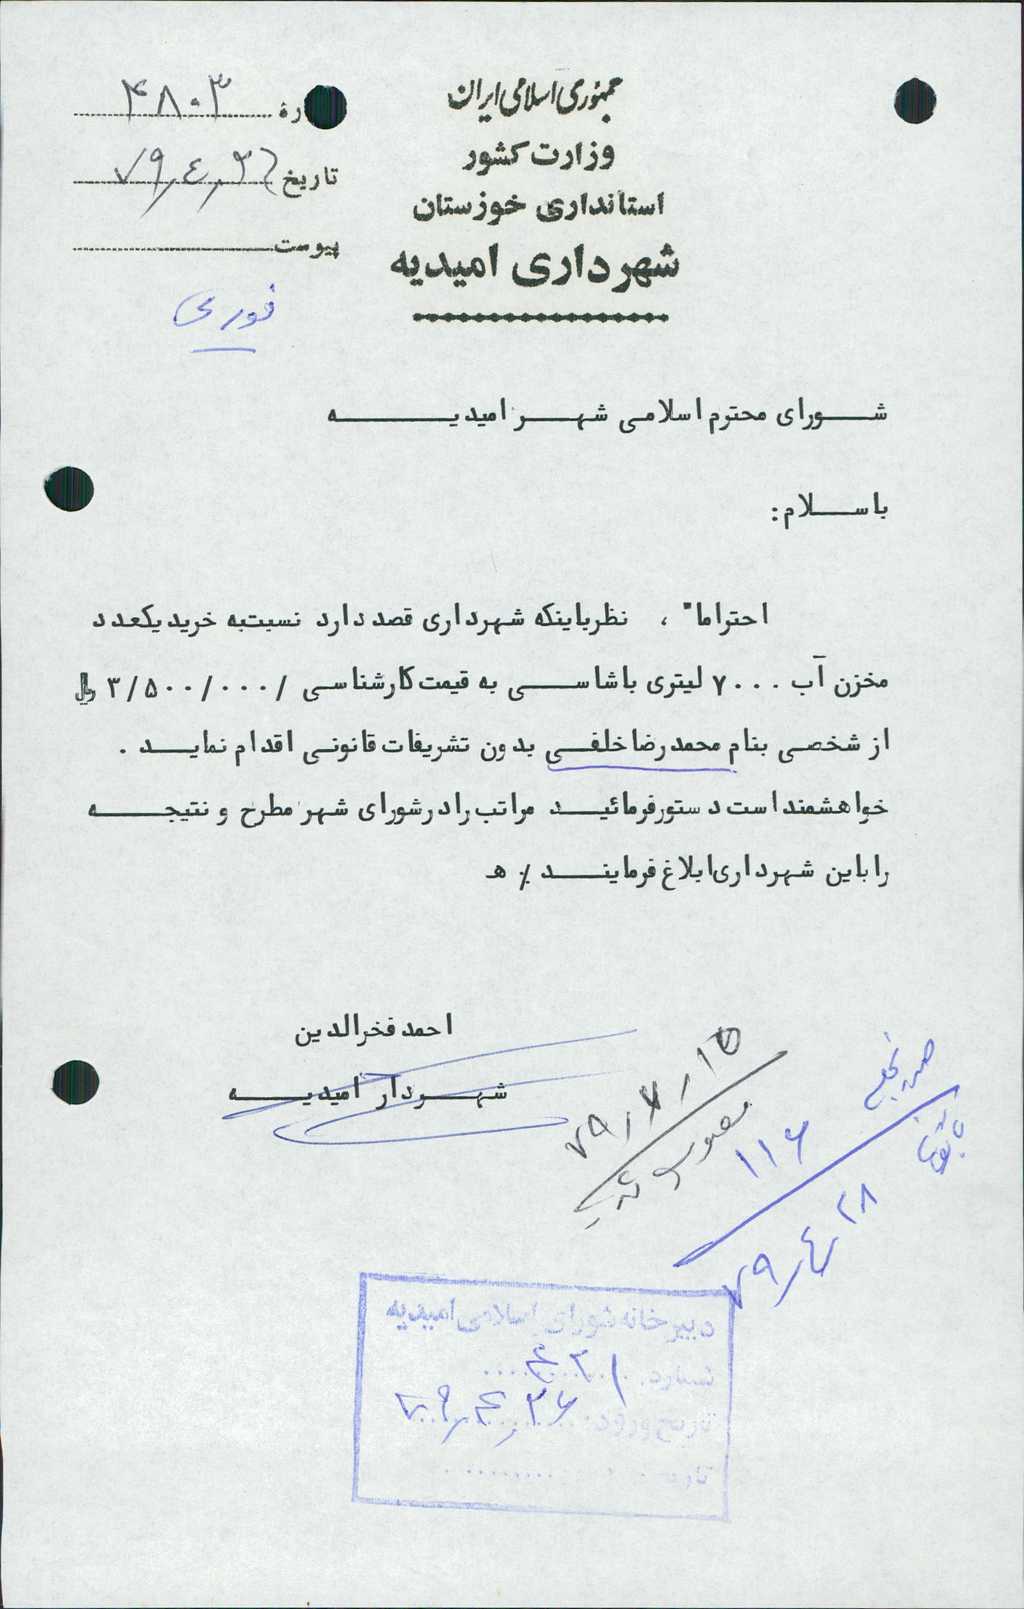 جمهوری اسلامی ایران
وزارت کشور
استانداری خوزستان
شهرداری امیدیه
۴۸۰۳
تاریخ ۷۹٫۴٫۲۶
پیوست
فوری
شورای محترم اسلامی شهر امیدیه
باسلام:
احتراما" ، نظرباینکه شهرداری قصددارد نسبت‌به خریدیکعدد
مخزن آب ۷۰۰۰ لیتری باشاسی به قیمت‌کارشناسی /۳/۵۰۰/۰۰۰ ریال
از شخصی بنام محمدرضاخلفی بدون تشریفات قانونی اقدام نماید .
خواهشمنداست دستورفرمائید مراتب رادرشورای شهر مطرح و نتیجه
راباین شهرداری‌ابلاغ فرمایند ٪ ه
احمدفخرالدین
شهردار امیدیه
۷۹٫۷٫۱۵
۱۱۶
۷۹٫۴٫۲۸
دبیرخانه شورای اسلامی امیدیه
شماره
تاریخ ورود: ۷۹٫۴٫۲۶